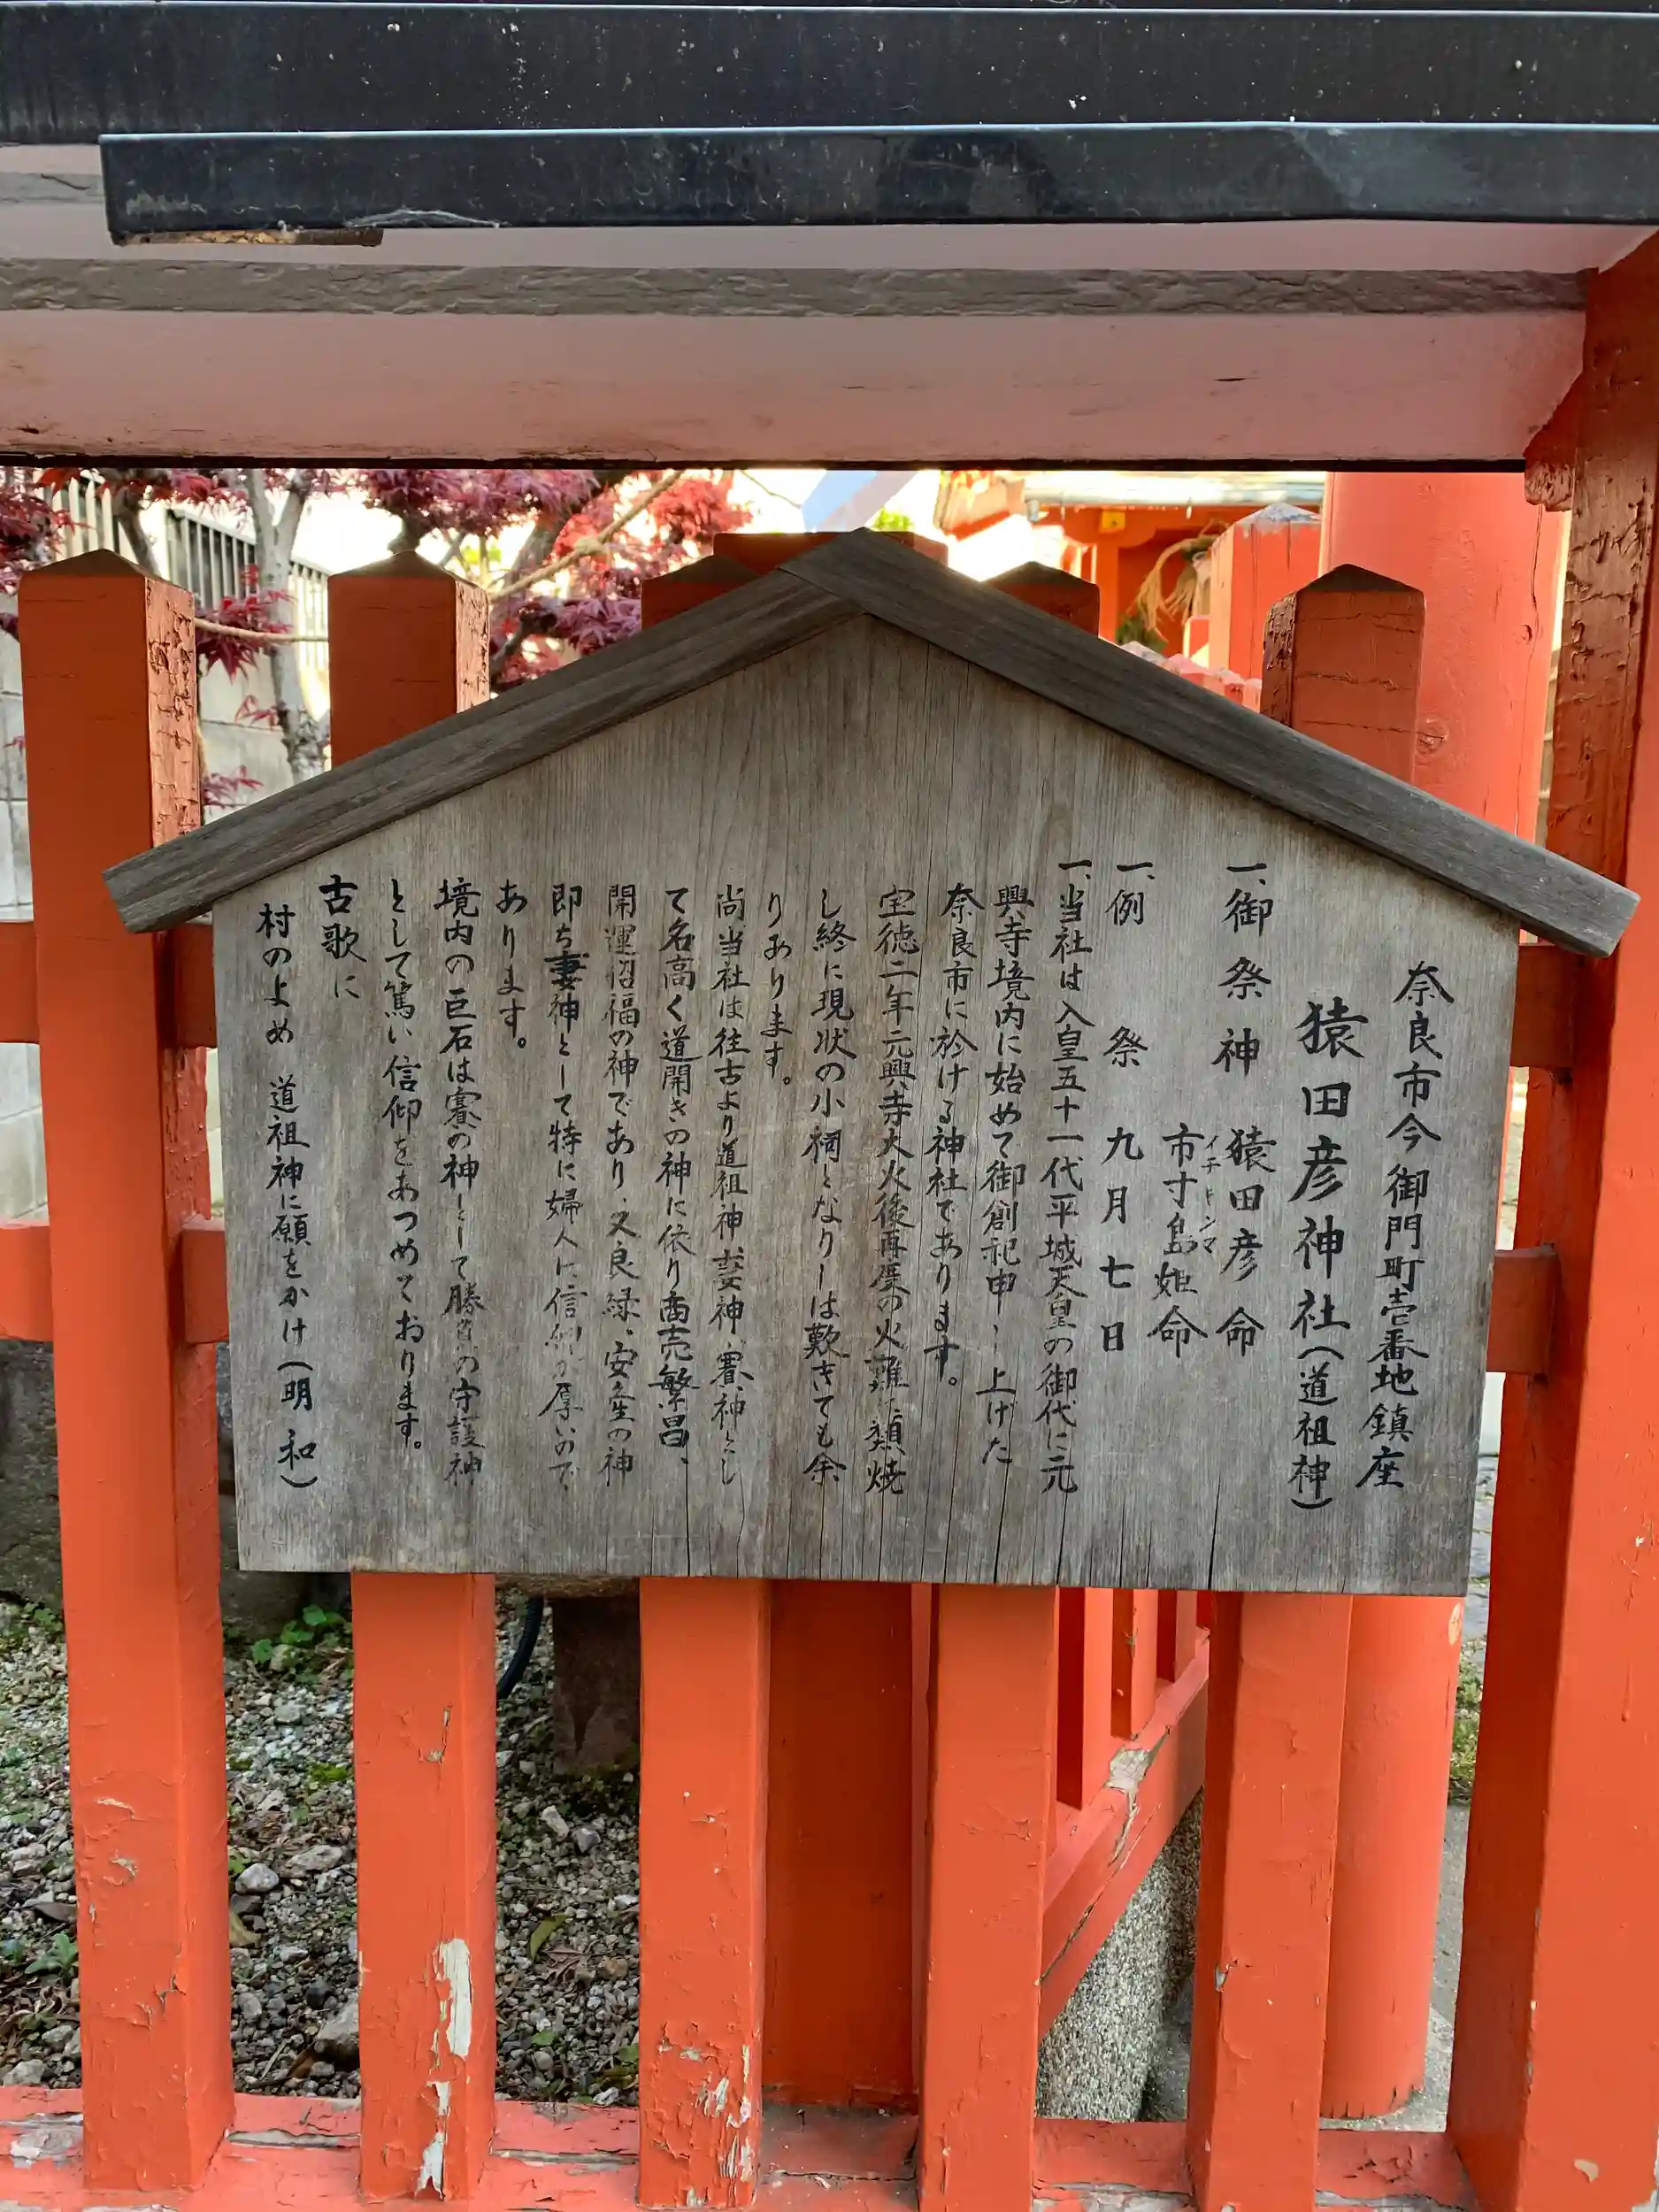 奈良市今御門町壱番地鎮座
猿田彦神社(道祖神)
一、御祭神 猿田彦命
市寸島姫命
イチキシマ
一、例 祭 九月七日
一、当社は人皇五十一代平城天皇の御代に元
興寺境内に始めて御創祀申し上げた
奈良市に於ける神社であります。
宝徳二年元興寺大火後再度の火難に類焼
し終に現状の小祠となりしは歎きても余
りあります。
尚当社は往古より道祖神、妻神、賽神とし
て名高く道開きの神に依り商売繁昌、
開運招福の神であり、又良縁、安産の神
即ち妻神として特に婦人に信仰が厚いので
あります。
境内の巨石は賽の神として勝負の守護神
として篤い信仰をあつめております。
古歌に
村のよめ 道祖神に願をかけ(明 和)